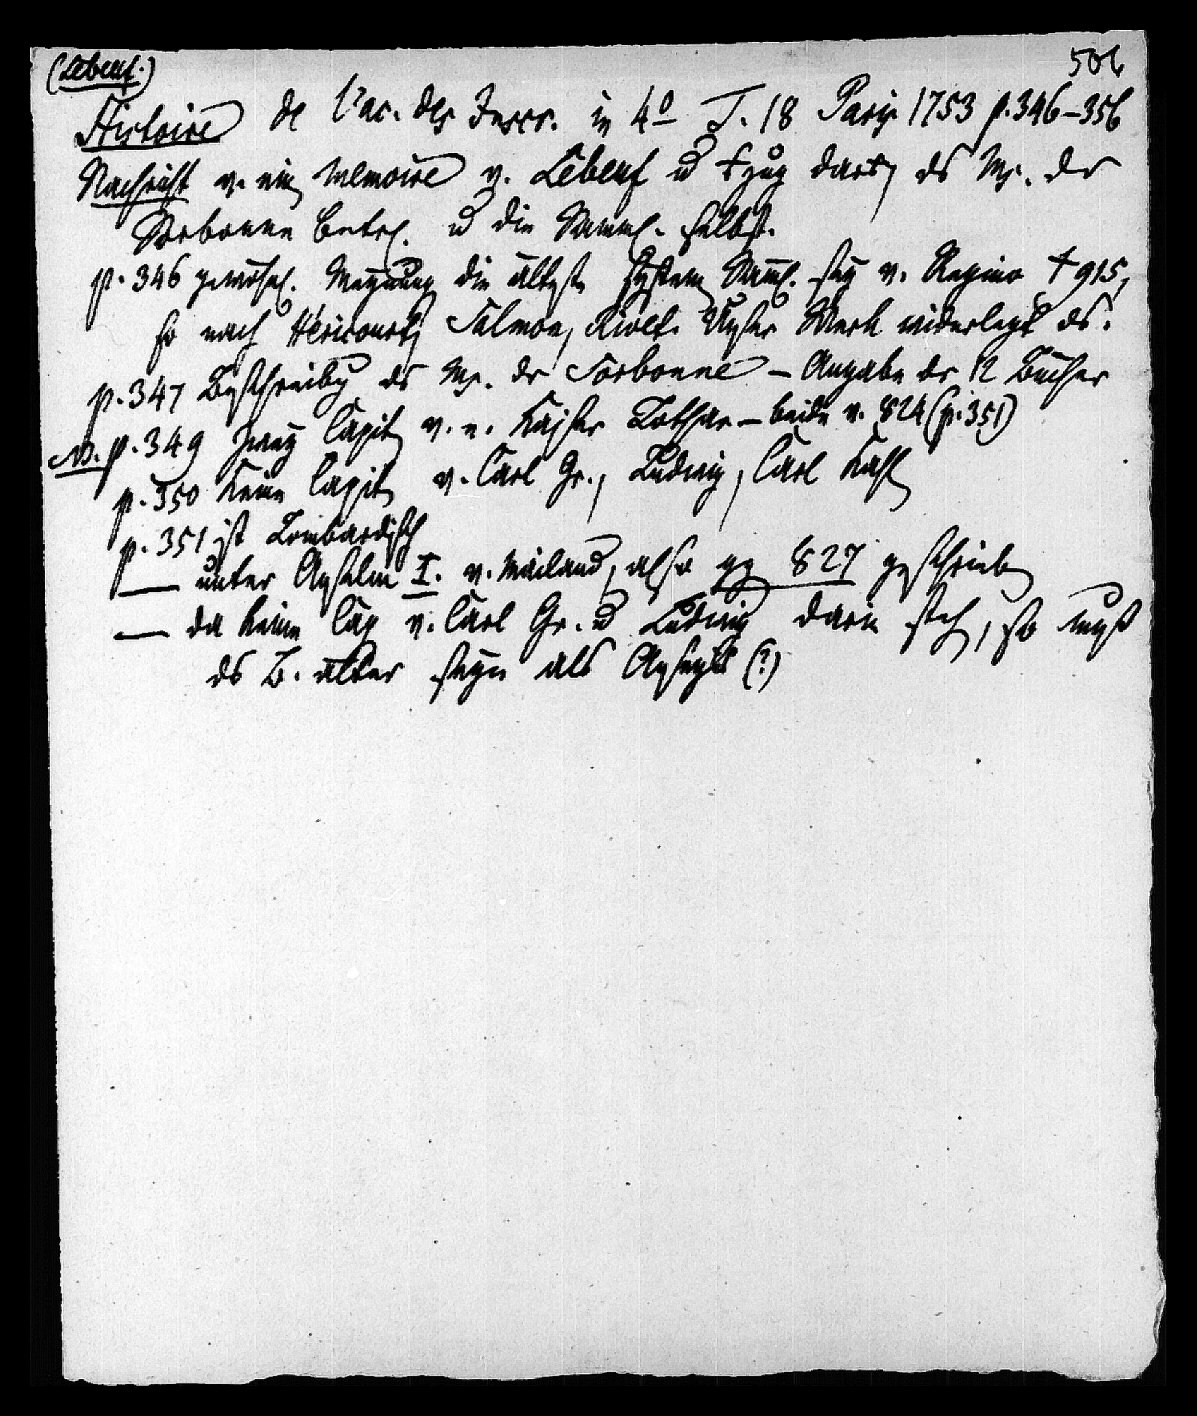 (Lebeuf.)
506
Histoire de l'Ac. des Inscr. in 4º T. 18 Paris 1753 p. 346–356
Nachricht v. ein Memoire v. Lebeuf u daraus ds Ms. der
Sorbonne betref. u die Samml. selbst.
p. 346 gewöhnl. Meynung die älteste system Saml. sey v. Regino † 915,
so nach Hericourt, Salmon, Rivet. Unser Werk widerlegt ds.
p. 347 Beschreibg ds Ms. der Sorbonne – Angabe der 12 Bücher
NB. p. 349 Capit v. Kaiser Lothar – beide v. 824 (p. 351)
p. 350 Keine Capit v. Carl Gr., Ludwig, Carl Kahl
p. 351 ist Lombardisch
— unter Anselm I. v. Mailand, also gg 827 geschrieb
— da keine Cap v. Carl Gr. u Ludwig darin steh, so muß
ds B. älter seyn als Ansegis (?)